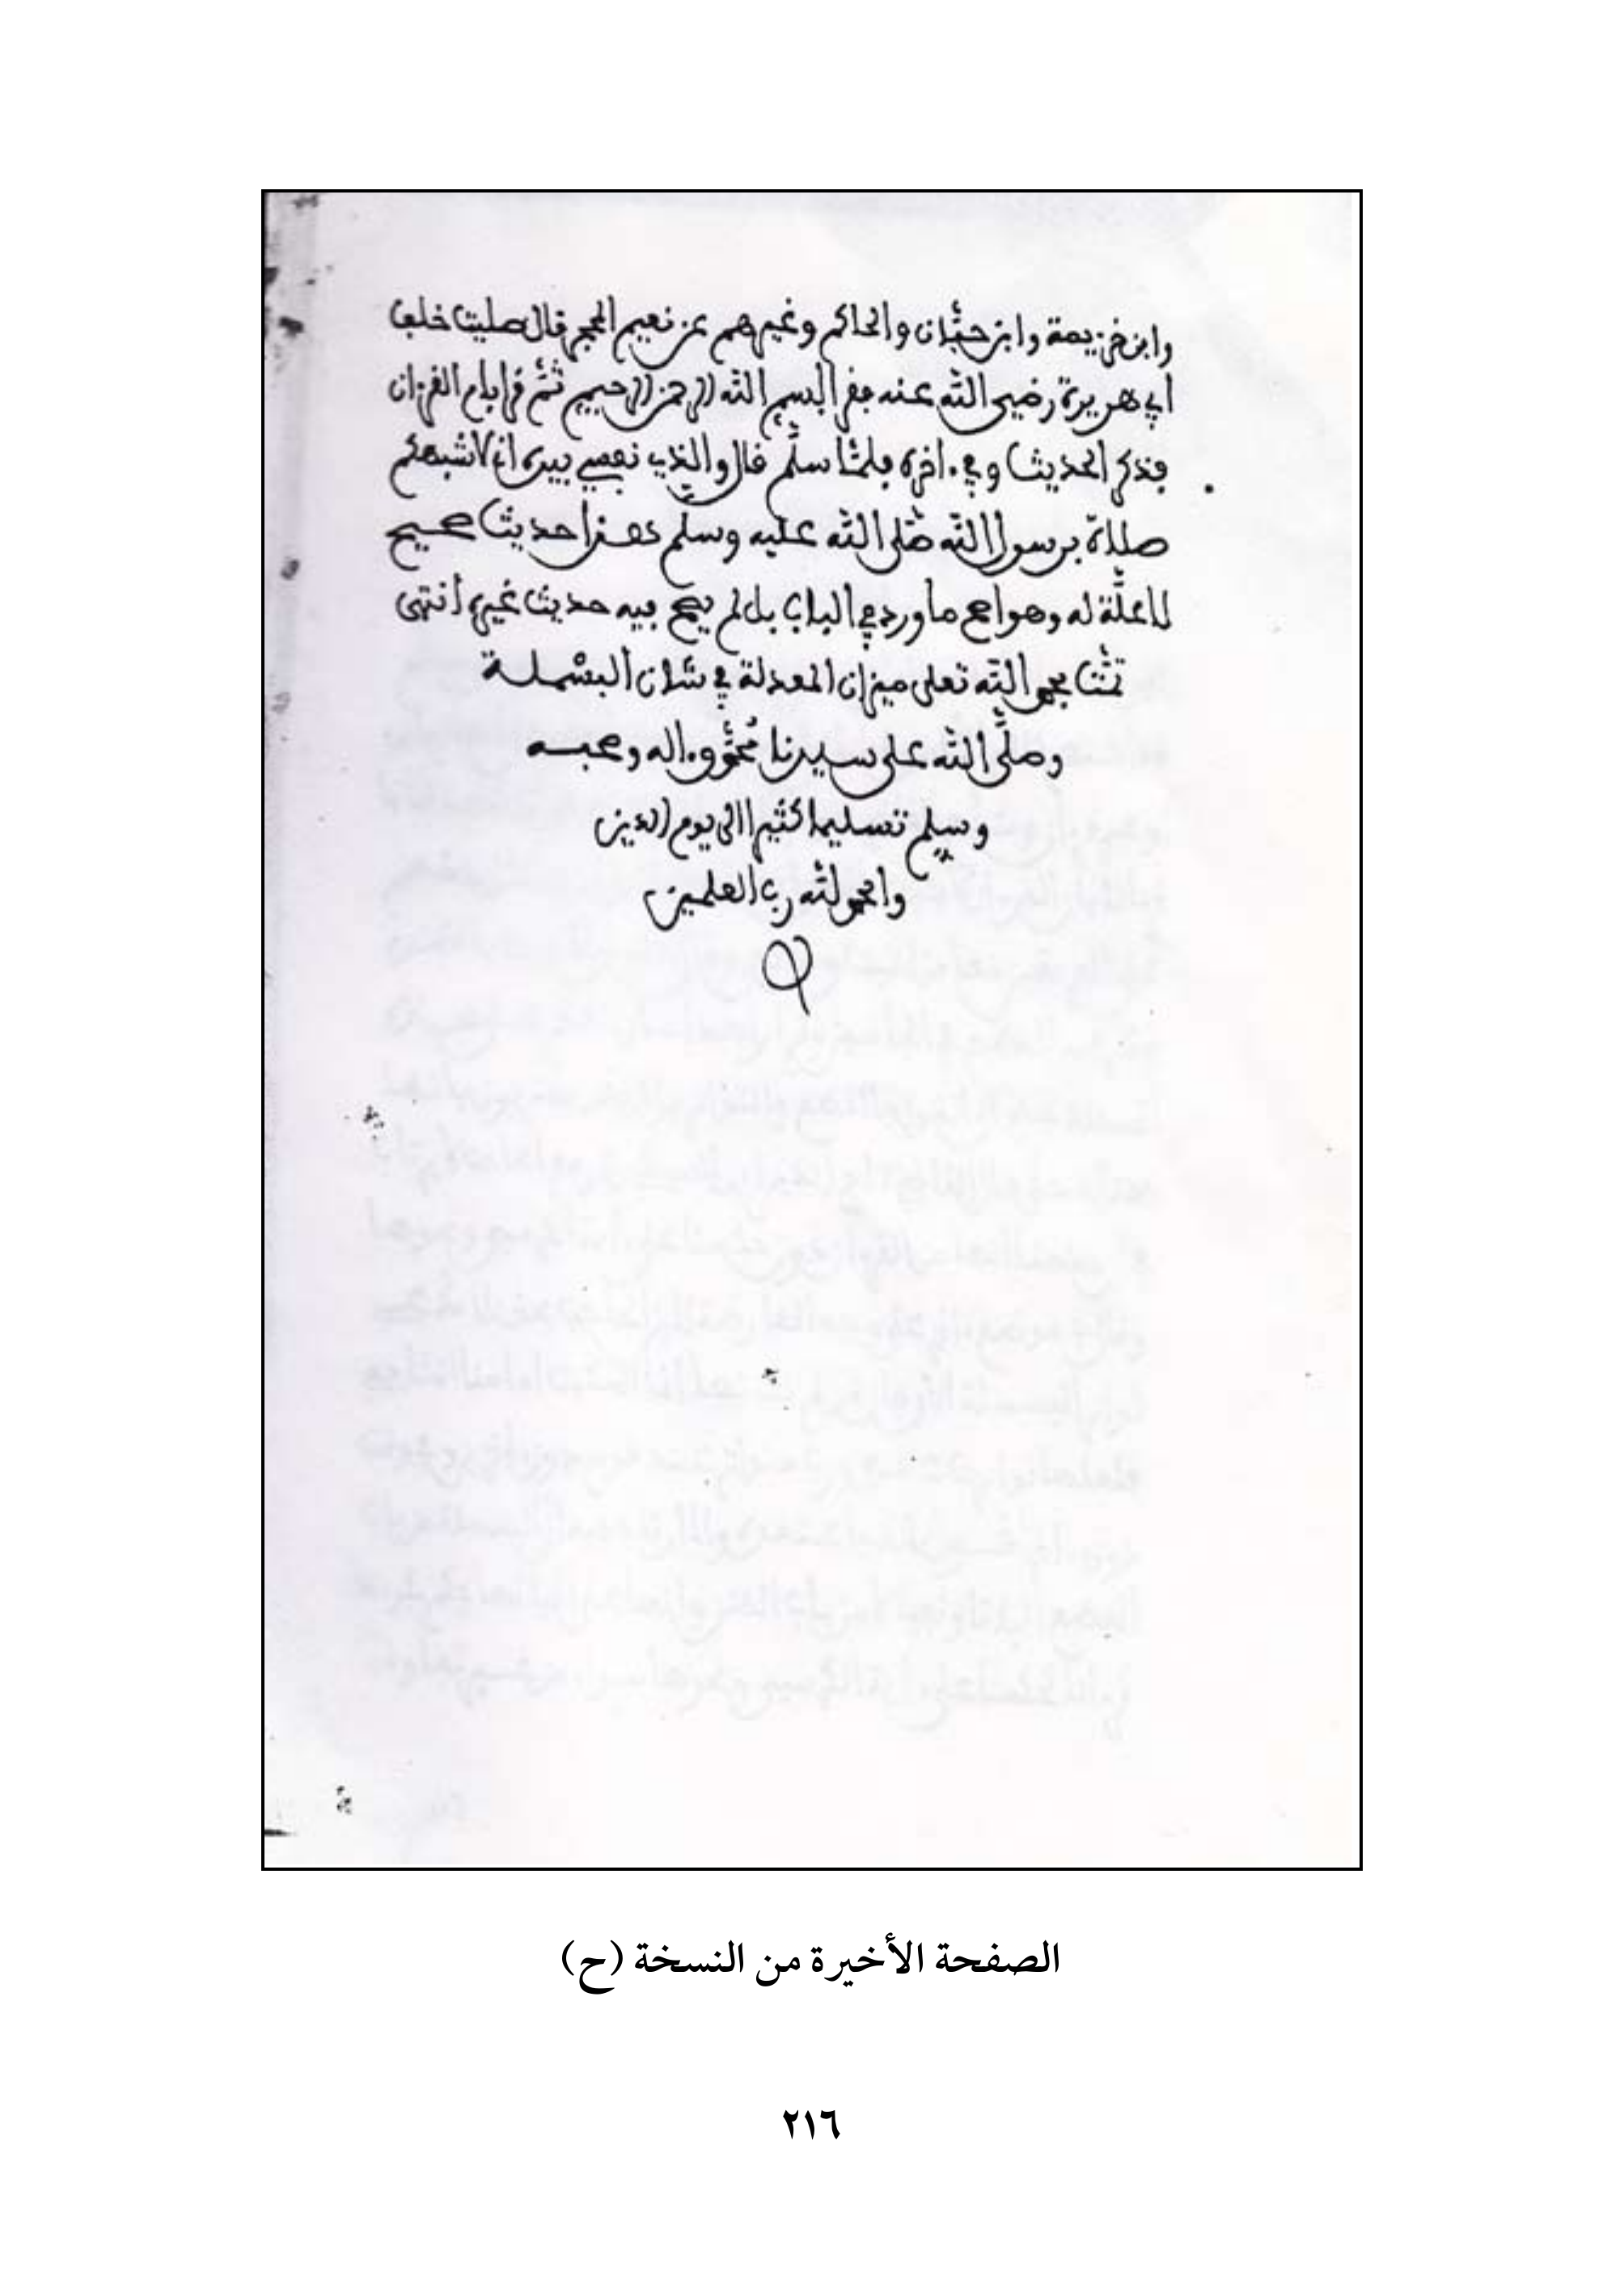 وابن خزيمة وابن حبَّان والحاكم وغيرهم عن نعيم المجمر قال صليت خلف
أبي هريرة رضي الله عنه فقرا بسم الله الرحمن الرحيم ثمّ قرا بام القرءان
فذكر الحديث وفي ءاخره فلمَّا سلَّم قال والذي نفسي بيده اني لاشبهكم
صلاة برسول الله صَلى الله عليه وسلم هذا حديث صحيح
لا علَّة له وهو اصح ما ورد في الباب بل لم يصح فيه حديث غيره انتهى
تمَّت بحمد الله تعلى ميزان المعدلة في شان البسملة
وصلَّى الله على سيدنا مُحمَّد وءاله وصحبه
وسلم تسليما كثيرا الى يوم الدين
والحمد لله رب العلمين
الصفحة الأخيرة من النسخة (ح)
٢١٦